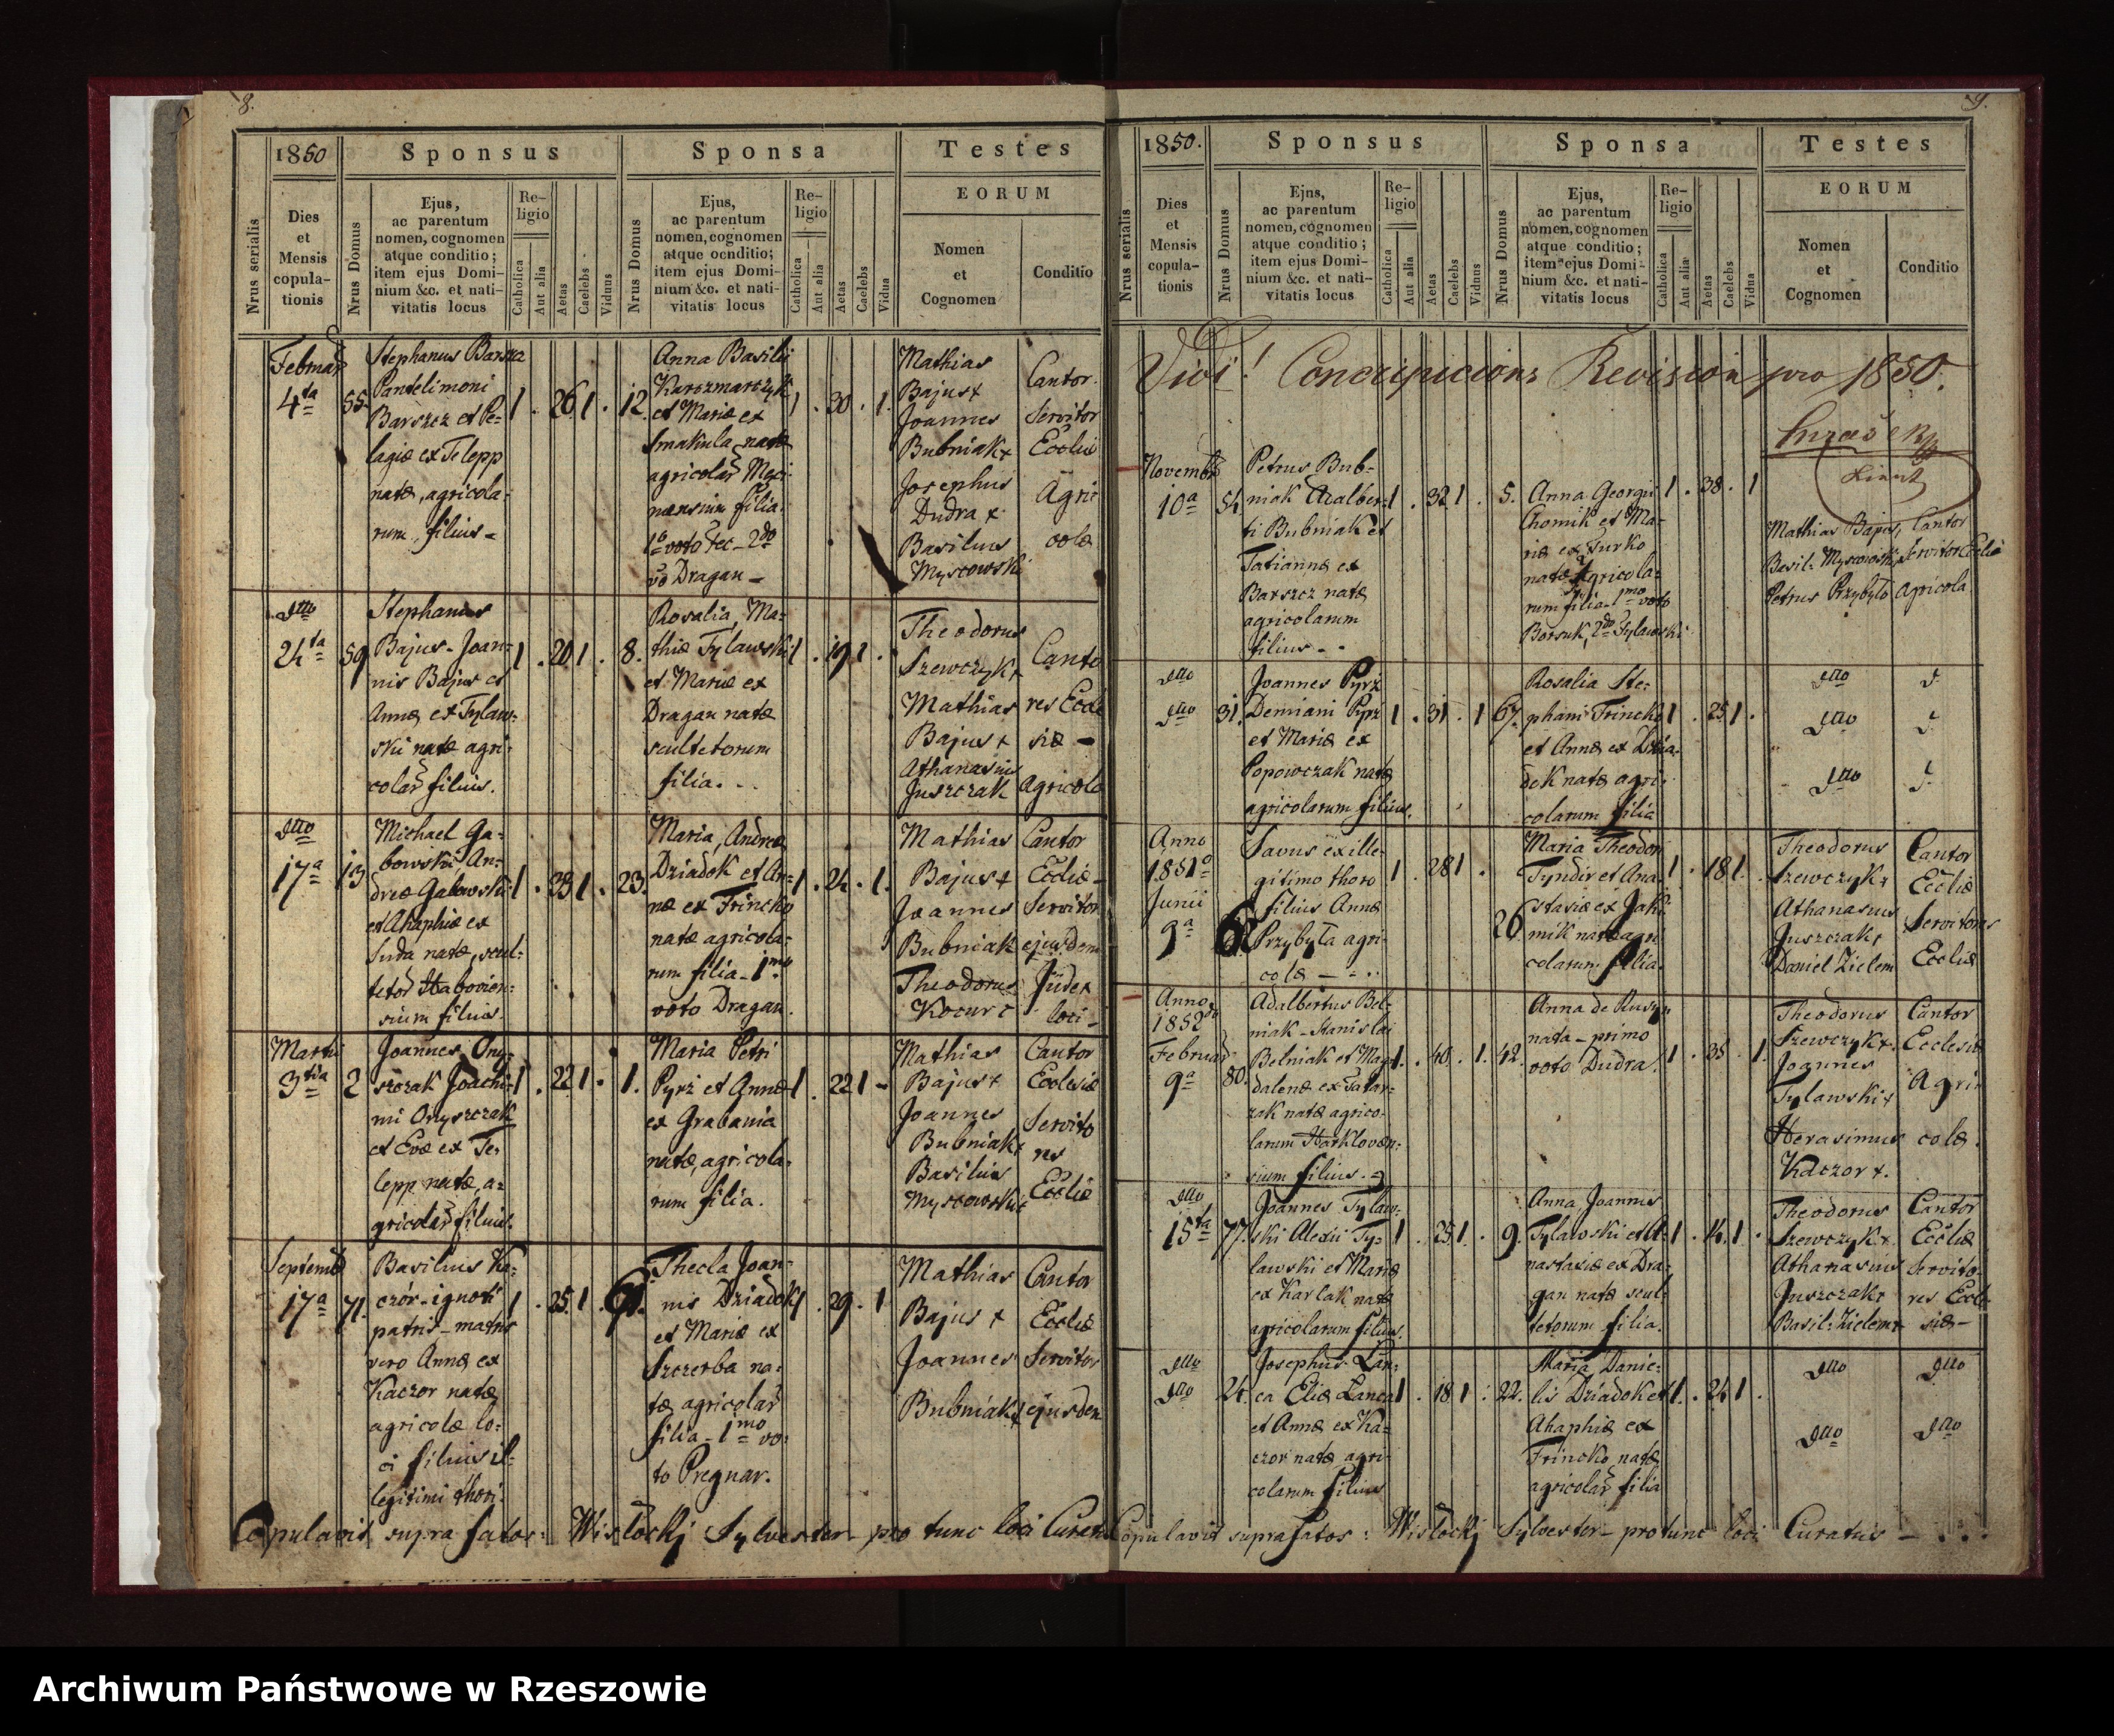 8.
1850
Sponsus
Sponsa
Testes
Nrus serialis
Dies
et
Mensis
copula-
tionis
Nrus Domus
Ejus,
ac parentum
nomen, cognomen
atque conditio;
item ejus Domi-
nium &c. et nati-
vitatis locus
Re-
ligio
Catholica
Aut alia
Aetas
Caelebs
Viduus
Nrus Domus
Ejus,
ac parentum
nomen, cognomen
atque ocnditio;
item ejus Domi-
nium &c. et nati-
vitatis locus
Re-
ligio
Catholica
Aut alia
Aetas
Caelebs
Vidua
EORUM
Nomen
et
Cognomen
Conditio
4ta
55.
Stephanus
Pantelimoni
Barszcz et Pe-
lagiæ ex Telepp
natæ, agricola-
rum filius -
1 . 26 1 .
12.
Anna Basilii
Karczmarczyk
et Mariæ ex
Smakula natæ
filia.
vo Dragan -
1 . 30 . 1.
Mathias
Bajus +
Joannes
Bubniak +
Josephus
Dudra +
Basilius
Myscowski
Cantor.
Servitor
Eccliæ
Agri
colæ
Dtto
24ta
59
Stephanus
Bajus - Joan-
nis Bajus et
Annæ ex Tylaw-
ski natæ agri-
filius.
1 . 20 1 .
8.
Rosalia, Ma-
thiæ Tylawski
et Mariæ ex
Dragan natæ
scultetorum
filia. . .
1 . 19 1 .
Theodorus
Szewczyk +
Mathias
Bajus +
Athanasius
Juszczak
Canto
res Eccle
siæ -
Agricola
Dtto
17a
13
Michael Ga-
bowski, An-
dreæ
et Ahaphiæ ex
natæ, scul-
filius.
1 . 33 1 .
23.
Maria, Andreæ
Dziadok et An-
næ ex Trincko
natæ agricola-
rum filia - 1mo
voto Dragan.
1 . 24 . 1.
Mathias
Bajus +
Joannes
Bubniak
Theodorus
Kocur
Cantor
Eccliæ -
Servitor
ejusdem
Judex
loci -
Martii
3tia
2
Joannes Ony-
szczak Joachi-
mi Onyszczak
et Evæ ex Te-
lepp natæ, a-
filius.
1 . 22 1 .
1.
Maria Petri
Pyrz et Annæ
ex Grabania
natæ, agricola-
rum filia.
1 . 22 1 -
Mathias
Bajus +
Joannes
Bubniak +
Basilius
Myscowski +
Cantor
Ecclesiæ
Servito
res
Eccliæ
17a
71.
Basilius Ka-
czór - ignoti
patris - matris
vero Annæ ex
Kaczor natæ
agricolæ lo-
ci filius il-
legitimi thori.
1 . 25 1 .
Thecla Joan-
nis Dziadok
et Mariæ ex
Szczerba na-
tæ
filia - 1mo vo-
to Pregnar.
1 . 29 . 1
Mathias
Bajus +
Joannes
Bubniak +
Cantor
Eccliæ
Servitor
ejusdem
Copulavit supra fatos: Wisłockj Sylvester - pro tunc loci
9.
1850.
Sponsus
Sponsa
Testes
Nrus serialis
Dies
et
Mensis
copula-
tionis
Nrus Domus
Ejns,
ac parentum
nomen, cognomen
atque conditio;
item ejus Domi-
nium &c. et nati-
vitatis locus
Re-
ligio
Catholica
Aut alia
Aetas
Caelebs
Vidnus
Nrus Domus
Ejus,
ac parentum
nomen, cognomen
atque conditio;
item ejus Domi-
nium &c. et nati-
vitatis locus
Re-
ligio
Catholica
Aut aliæ
Aetas
Caelebs
Vidua
EORUM
Nomen
et
Cognomen
Conditio
Vidi! Revision pro 1850.
10a
54
Petrus Bub-
niak Adalber-
ti Bubniak et
Tatiannæ ex
Barszcz natæ
agricolarum
filius - -
1 . 32 1 .
5.
Anna Georgii
Chomik et Ma-
riæ ex Turko
natæ Agricola-
rum filia - 1mo voto
Borsuk, 2do Tylawski
1 . 38 . 1
Mathias Bajus, Cantor
Basil: Myscowski, Servitor Eccliæ
Petrus Przybyło Agricola
Dtto
Dtto
31.
Joannes Pyrz
Demiani Pyrz
et Mariæ ex
Popowczak natæ
agricolarum filius.
1 . 31 . 1
67.
Rosalia Ste-
phani Trincko
et Annæ ex Dzia-
dek natæ agri-
colarum filia
1 . 25 1 .
Dtto
Dtto
Dtto
Anno
1851o
Junii
9a
Savus ex ille-
gitimo thoro
filius Annæ
Przybyła agri-
colæ - - . .
1 . 28 1 .
26
Maria Theodori
Tyndir et Ana-
stasiæ ex Jaki-
mik natæ agri
colarum filia.
1 . 18 1 .
Theodorus
Szewczyk +
Athanasius
Juszczak +
Daniel Zielem
Cantor
Eccliæ
Servitores
Eccliæ
Anno
1852do
9a
80.
Adalbertus Bel-
niak - Stanislai
Belniak et Mag-
dalenæ ex Tatar-
zak natæ agrico-
larum Harkloven-
sium filius. -
1 . 40 . 1.
42.
Anna de Rusyn
nata - primo
voto Dudra.
1 . 35 . 1.
Theodorus
Szewczyk +
Joannes
Tylawski +
Herasimus
Kaczor +.
Cantor
Ecclesiæ
Agri-
colæ.
Dtto
15ta
77.
Joannes Tylaw-
ski Alexii Ty-
lawski et Mariæ
ex Karlak natæ
agricolarum filius.
1 . 25 1 .
9.
Anna, Joannis
Tylawski et A-
nastasiæ ex Dra-
gan natæ scul-
tetorum filia.
1 . 14 . 1 .
Theodorus
Szewczyk +
Athanasius
Juszczak +
Basil: Zielem +
Cantor
Eccliæ
Servito-
res Eccle-
siæ -
Dtto
Dtto
24.
Josephus Lan-
ca Eliæ Lanca
et Annæ ex Ka-
czor natæ agri-
colarum filius
1 . 18 1 .
22.
Maria, Danie-
lis Dziadok et
Ahaphiæ ex
Trincko natæ
filia
1 . 24 1 .
Dtto
Dtto
Dtto
Dtto
Copulavit supra fatos: Wisłockj Sylvester - pro tunc loci Curatus - . . .
Archiwum Państwowe w Rzeszowie